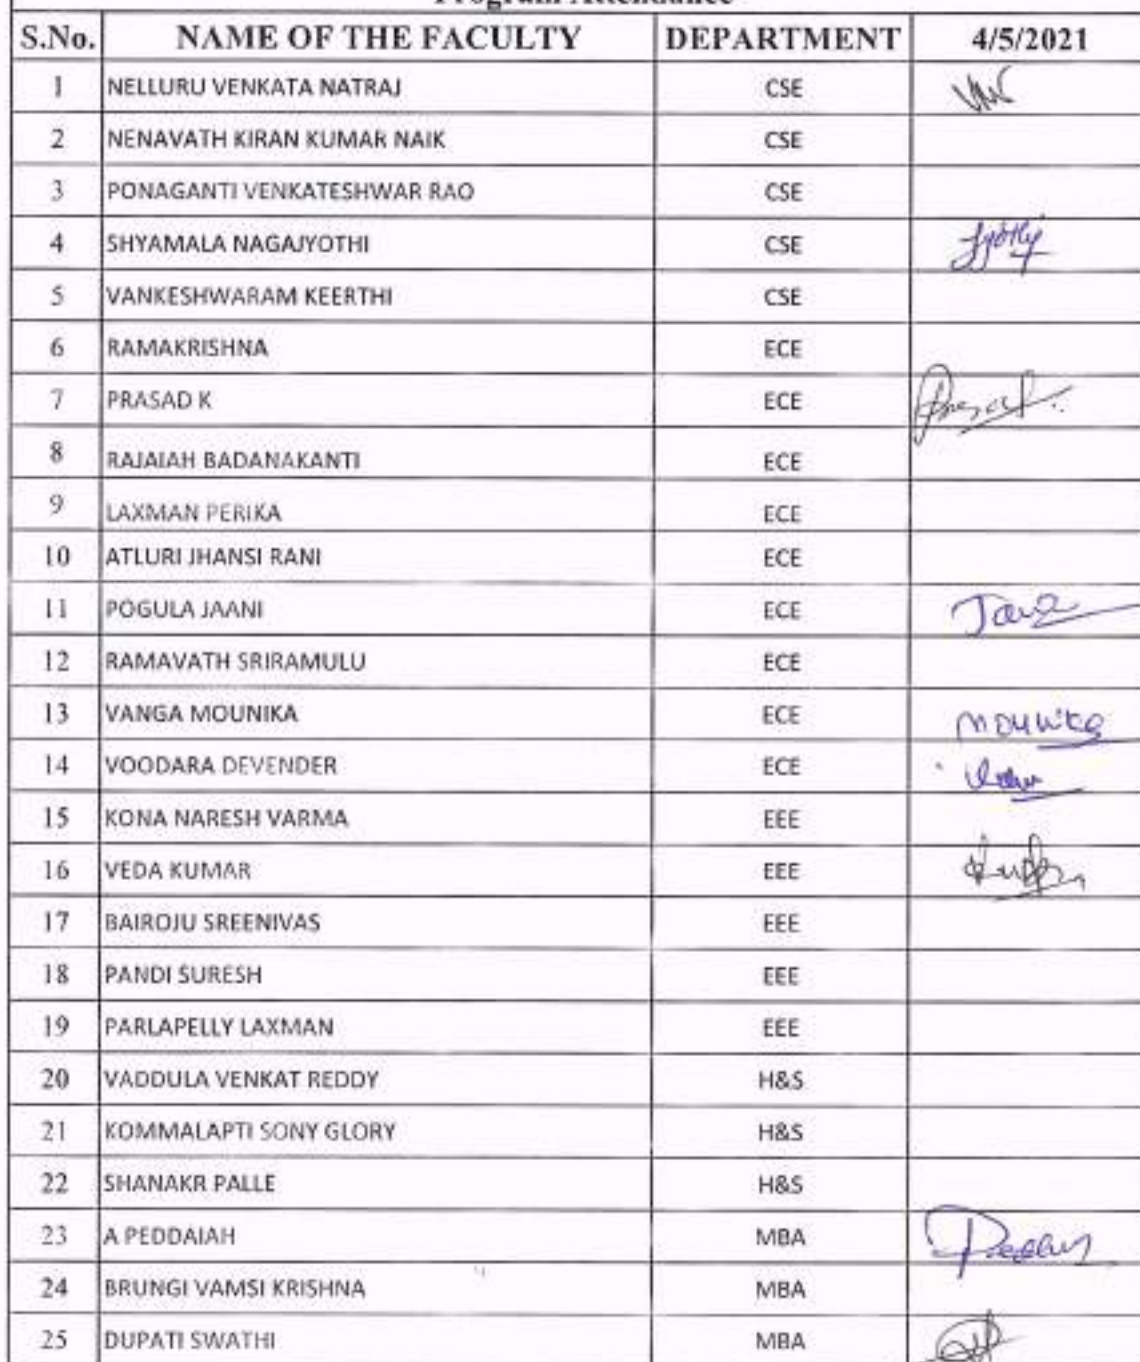 Program Attendance
S.No. NAME OF THE FACULTY DEPARTMENT 4/5/2021
1 NELLURU VENKATA NATRAJ CSE
2 NENAVATH KIRAN KUMAR NAIK CSE
3 PONAGANTI VENKATESHWAR RAO CSE
4 SHYAMALA NAGAJYOTHI CSE Jyothy
5 VANKESHWARAM KEERTHI CSE
6 RAMAKRISHNA ECE
7 PRASAD K ECE Prasad
8 RAJAIAH BADANAKANTI ECE
9 LAXMAN PERIKA ECE
10 ATLURI JHANSI RANI ECE
11 POGULA JAANI ECE
12 RAMAVATH SRIRAMULU ECE
13 VANGA MOUNIKA ECE mounika
14 VOODARA DEVENDER ECE
15 KONA NARESH VARMA EEE
16 VEDA KUMAR EEE
17 BAIROJU SREENIVAS EEE
18 PANDI SURESH EEE
19 PARLAPELLY LAXMAN EEE
20 VADDULA VENKAT REDDY H&S
21 KOMMALAPTI SONY GLORY H&S
22 SHANAKR PALLE H&S
23 A PEDDAIAH MBA
24 BRUNGI VAMSI KRISHNA MBA
25 DUPATI SWATHI MBA